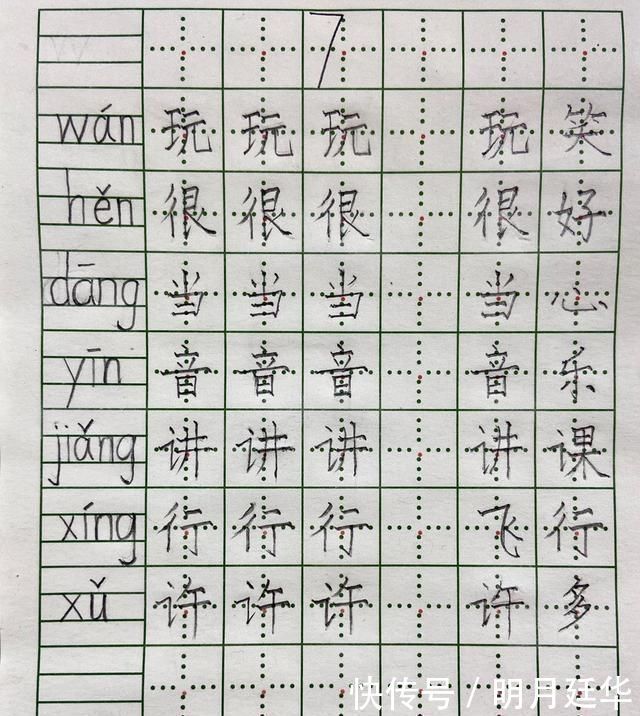 7
wán 玩 玩 玩 玩 笑
hěn 很 很 很 很 好
dāng 当 当 当 当 心
yīn 音 音 音 音 乐
jiǎng 讲 讲 讲 讲 课
xíng 行 行 行 飞 行
xǔ 许 许 许 许 多
快传号 / 明月廷华